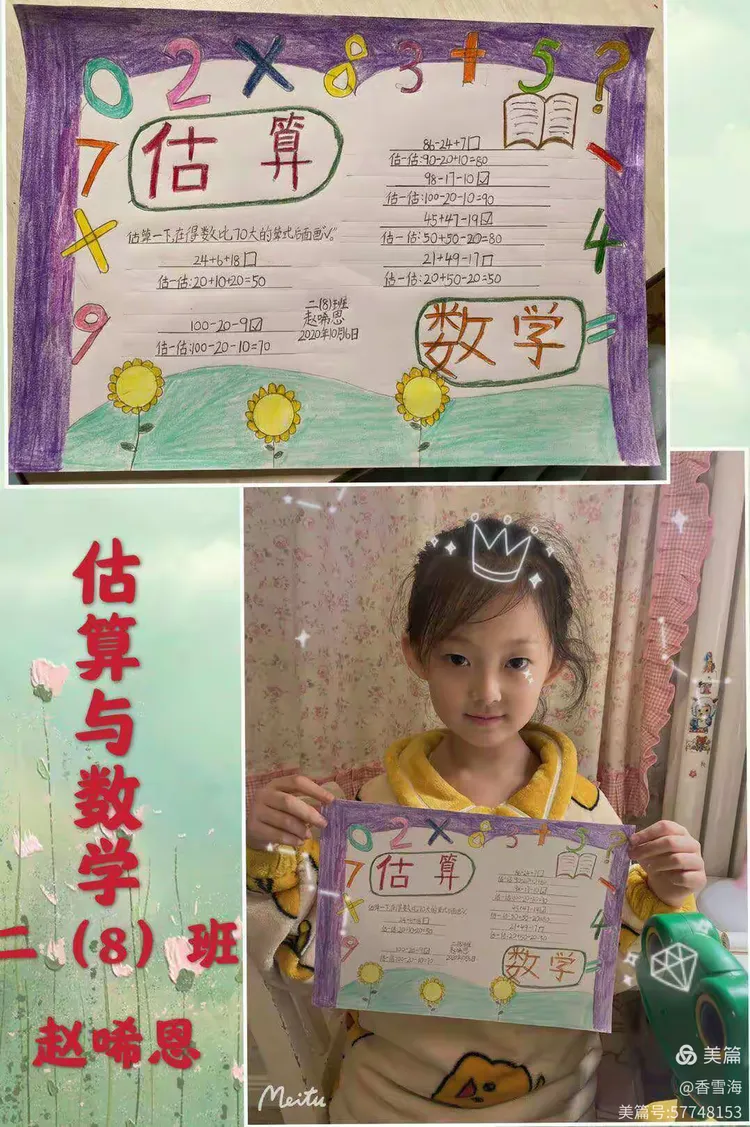 0 2 × 8 3 + 5 ?
7
×
9
-
4
=
估算
估算一下,在得数比70大的算式后面画“√”。
24+6+18□
估一估:20+10+20=50
100-20-9☑
估一估:100-20-10=70
二(8)班
赵唏恩
2020年10月16日
86-24+7□
估一估:90-20+10=80
98-17-10☑
估一估:100-20-10=90
45+47-19☑
估一估:50+50-20=80
21+49-17□
估一估:20+50-20=50
数学
估算与数学
二（8）班
赵唏恩
0 2 × 8 3 + 5 ?
7
×
9
-
4
=
估算
数学
Meitu
美篇
@香雪海
美篇号:57748153